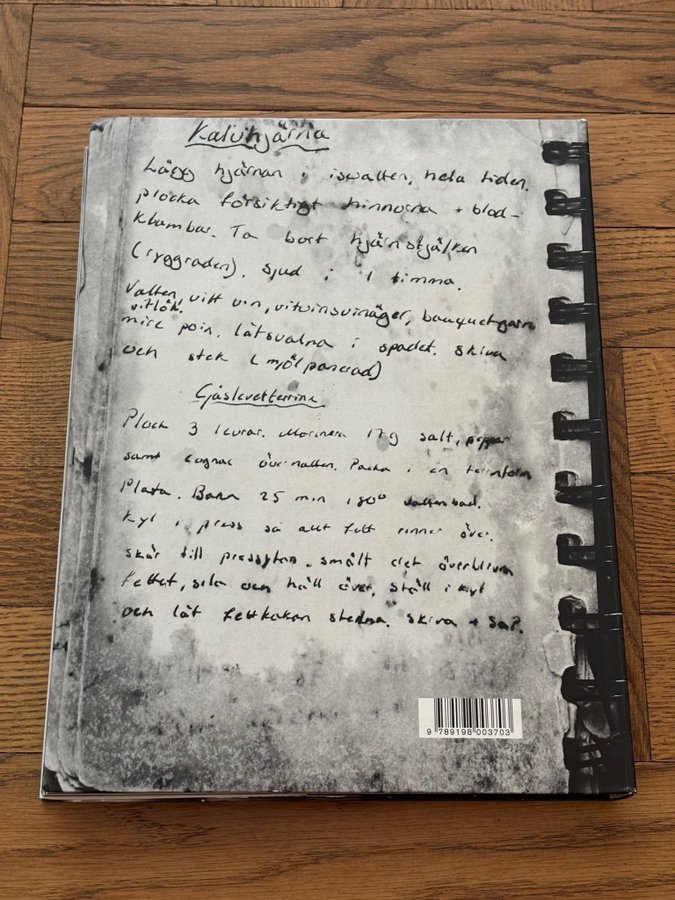 Kalvhjärna
Lägg hjärnan i isvatten, hela tiden.
plocka försiktigt hinnorna + blod-
klumpar. Ta bort hjärnstjälken
(ryggraden). sjud i 1 timma.
Vatten, vitt vin, vitvinsvinäger, bouquetgarni
vitlök.
mire poix. låt svalna i spadet. skiva
och stek (mjölpanerad)
Gåsleverterrine
Plock 3 levrar. Marinera 17g salt, peppar
samt cognac över natten. Packa i en terrinform
Plasta. Baka 25 min 180° vattenbad.
kyl i press så att fett rinner över.
skär till pressytan. smält det överblivna
fettet, sila och häll över. ställ i kyl
och låt fettkakan stelna. skiva + S&P.
9 789198 003703